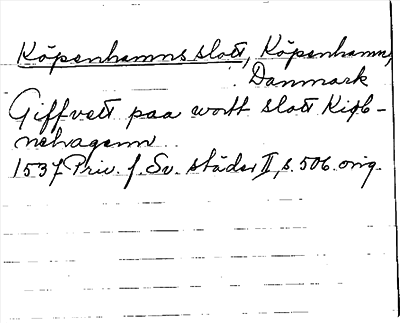 Köpenhamns slott, Köpenhamn,
Danmark
Giffvett paa wortt slott Kiøb-
nehagenn
1537 Priv. f. Sv. städer II, s. 506. orig.